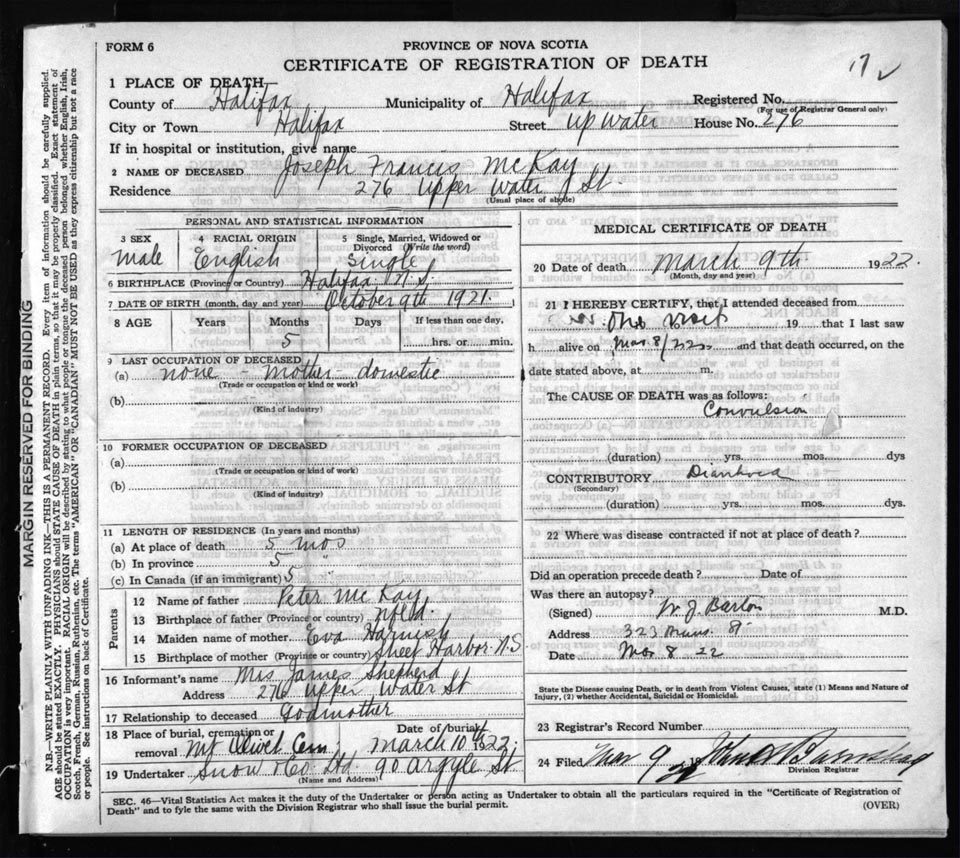 FORM 6
PROVINCE OF NOVA SCOTIA
CERTIFICATE OF REGISTRATION OF DEATH
1 PLACE OF DEATH—
County of Halifax Municipality of Halifax Registered No.
(For use of Registrar General only)
City or Town Halifax Street up Water House No. 276
If in hospital or institution, give name
2 NAME OF DECEASED Joseph Francis McKay
Residence 276 Upper Water St.
(Usual place of abode)
PERSONAL AND STATISTICAL INFORMATION
3 SEX male
4 RACIAL ORIGIN English
5 Single, Married, Widowed or Divorced (Write the word) Single
6 BIRTHPLACE (Province or Country) Halifax N.S.
7 DATE OF BIRTH (month, day and year) October 9th 1921
8 AGE Years Months 5 Days If less than one day, hrs. or min.
9 LAST OCCUPATION OF DECEASED
(a) none - mother - domestic
(Trade or occupation or kind of work)
(b)
(Kind of industry)
10 FORMER OCCUPATION OF DECEASED
(a)
(Trade or occupation or kind of work)
(b)
(Kind of industry)
11 LENGTH OF RESIDENCE (In years and months)
(a) At place of death 5 mos
(b) In province 5 "
(c) In Canada (if an immigrant) 5
Parents
12 Name of father Peter McKay
13 Birthplace of father (Province or country) Nfld.
14 Maiden name of mother Eva Harnish
15 Birthplace of mother (Province or country) Sheet Harbor N.S
16 Informant's name Mrs James Shepherd
Address 276 Upper Water St
17 Relationship to deceased Godmother
18 Place of burial, cremation or removal Mt Olivet Cem. Date of burial March 10th 22.
19 Undertaker Snow & Co. Ltd. 90 Argyle St.
(Name and Address)
MEDICAL CERTIFICATE OF DEATH
20 Date of death March 9th 1922.
(Month, day and year)
21 I HEREBY CERTIFY, that I attended deceased from
One visit 19 that I last saw
h alive on Mar. 8/22 and that death occurred, on the
date stated above, at m.
The CAUSE OF DEATH was as follows:
Convulsion
(duration) yrs. mos. dys
CONTRIBUTORY Diarrhoea
(Secondary)
(duration) yrs. mos. dys.
22 Where was disease contracted if not at place of death?
Did an operation precede death? Date of
Was there an autopsy?
(Signed) W. J. Barton M.D.
Address 323
Date Mar 8 22
State the Disease causing Death, or in death from Violent Causes, state (1) Means and Nature of
Injury, (2) whether Accidental, Suicidal or Homicidal.
23 Registrar's Record Number
24 Filed Mar 9 19
Division Registrar
SEC. 46—Vital Statistics Act makes it the duty of the Undertaker or person acting as Undertaker to obtain all the particulars required in the "Certificate of Registration of
Death" and to fyle the same with the Division Registrar who shall issue the burial permit.
(OVER)
MARGIN RESERVED FOR BINDING
N.B.—WRITE PLAINLY WITH UNFADING INK—THIS IS A PERMANENT RECORD. Every item of information should be carefully supplied.
AGE should be stated EXACTLY. PHYSICIANS should STATE CAUSE OF DEATH in plain terms, so that it may be properly classified. Exact statement of
OCCUPATION is very important. RACIAL ORIGIN will be described by stating to what people or tongue the deceased person belonged whether English, Irish,
Scotch, French, German, Russian, Ruthenian, etc. The terms "AMERICAN" OR "CANADIAN" MUST NOT BE USED as they express citizenship but not a race
or people. See instructions on back of Certificate.